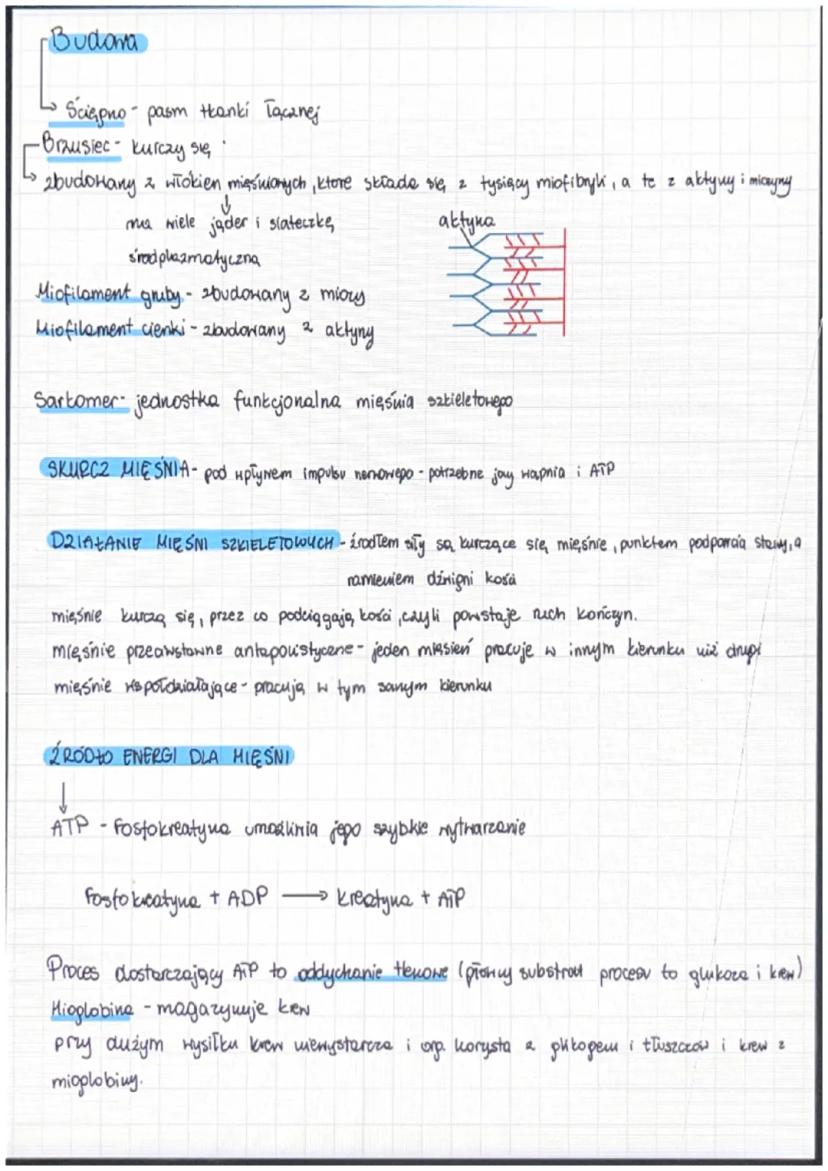 Budowa
Ścięgno - pasm tkanki łącznej
Brzusiec - kurczy się
zbudowany z włókien mięśniowych, które składa się z tysięcy miofibryli, a te z aktyny i miozyny
ma wiele jąder i siateczkę
aktyna
śródplazmatyczną
Miofilament gruby - zbudowany z miozy
Miofilament cienki - zbudowany z aktyny
Sarkomer - jednostka funkcjonalna mięśnia szkieletowego
SKURCZ MIĘŚNIA - pod wpływem impulsu nerwowego - potrzebne jony wapnia i ATP
DZIAŁANIE MIĘŚNI SZKIELETOWYCH - źródłem siły są kurczące się mięśnie, punktem podparcia stawy, a
ramieniem dźwigni kości
mięśnie kurczą się, przez co podciągają kości, czyli powstaje ruch kończyn.
mięśnie przeciwstawne antagonistyczne - jeden mięsień pracuje w innym kierunku niż drugi
mięśnie współdziałające - pracują w tym samym kierunku
ŹRÓDŁO ENERGI DLA MIĘŚNI
ATP - Fosfokreatyna umożliwia jego szybkie wytwarzanie
Fosfokreatyna + ADP → kreatyna + ATP
Proces dostarczający ATP to oddychanie tlenowe (główny substrat procesu to glukoza i krew)
Mioglobina - magazynuje krew
przy dużym wysiłku krew niewystarcza i org. korysta z glikogenu i tłuszczów i krew z
mioglobiny.